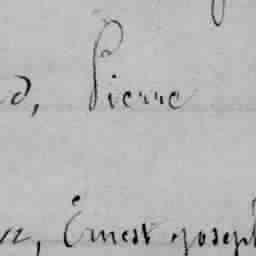 d, Pierre
Ernest Joseph